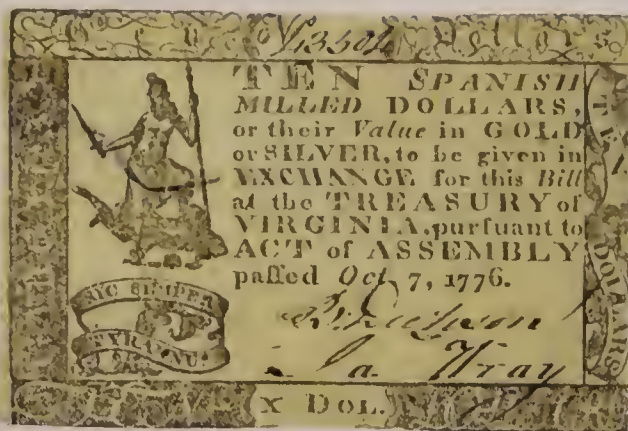 TEN SPANISH
MILLED DOLLARS,
or their Value in GOLD
or SILVER, to be given in
EXCHANGE for this Bill
at the TREASURY of
VIRGINIA, purſuant to
ACT of ASSEMBLY
paſſed Oct, 7, 1776.
SIC SEMPER
TYRANNUS
Wray
X DOL.
TEN DOLLARS